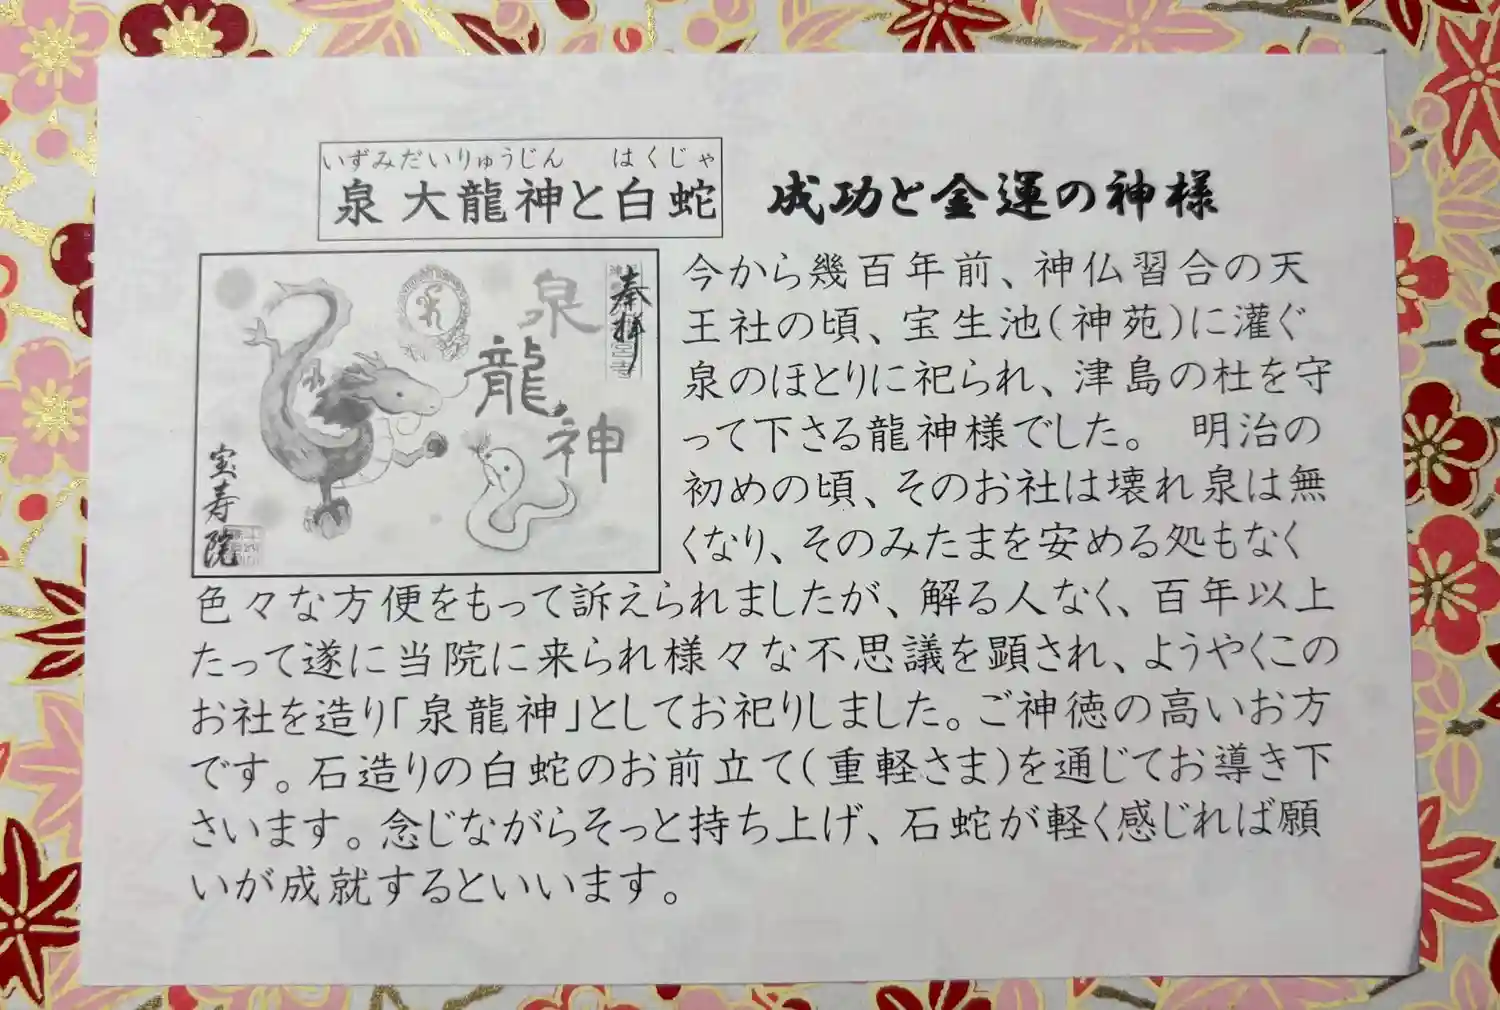 いずみだいりゅうじん はくじゃ
泉 大龍神と白蛇
成功と金運の神様
奉拝
泉
龍
神
宝寿院
今から幾百年前、神仏習合の天
王社の頃、宝生池(神苑)に灌ぐ
泉のほとりに祀られ、津島の杜を守
って下さる龍神様でした。 明治の
初めの頃、そのお社は壊れ泉は無
くなり、そのみたまを安める処もなく
色々な方便をもって訴えられましたが、解る人なく、百年以上
たって遂に当院に来られ様々な不思議を顕され、ようやくこの
お社を造り「泉龍神」としてお祀りしました。ご神徳の高いお方
です。石造りの白蛇のお前立て(重軽さま)を通じてお導き下
さいます。念じながらそっと持ち上げ、石蛇が軽く感じれば願
いが成就するといいます。